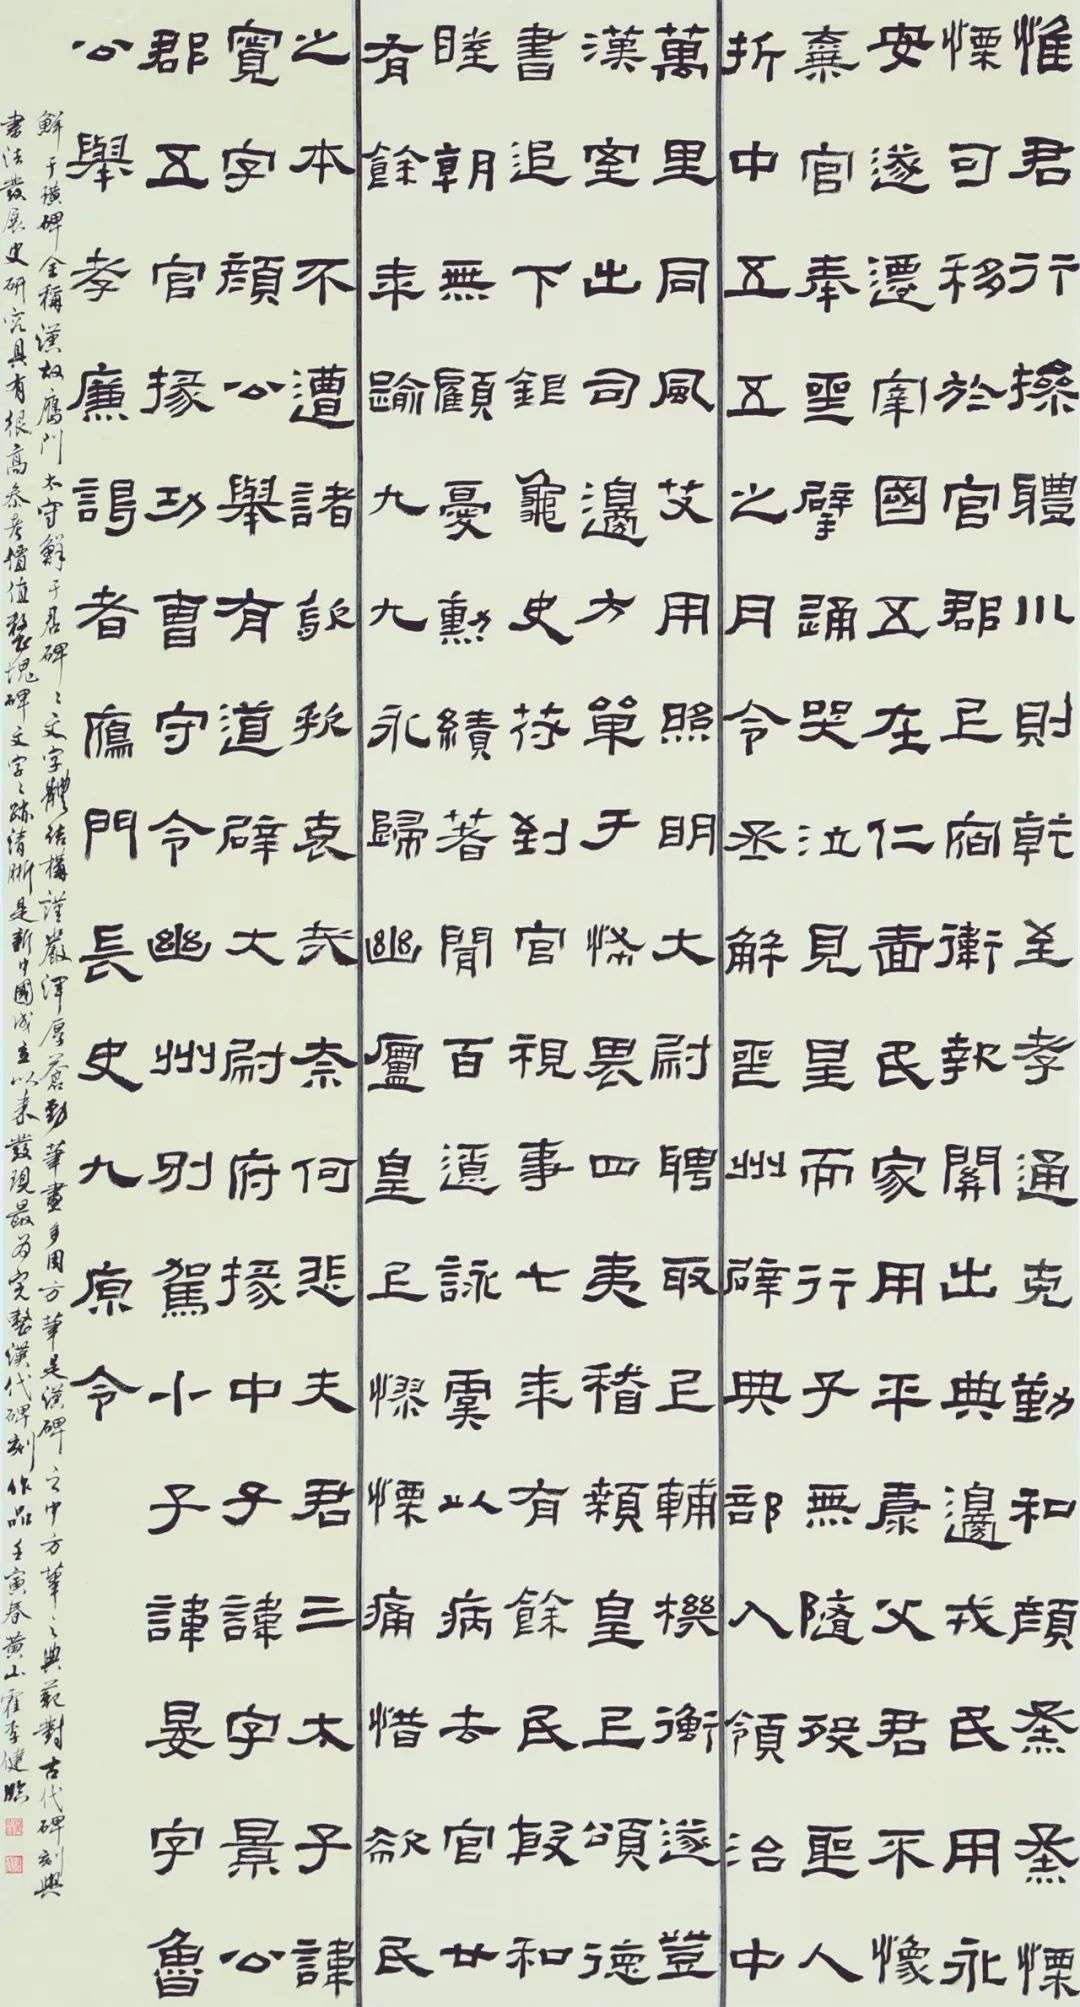 惟君行操體川則乾至孝通克勤和顏烝烝慄
慄可移於官郡上宿衛執關出典邊戎民用永
安遂遷宰國五在仁啚民家用平康父君不像
棄官奉聖擘踊哭泣見星而行子無隨歿聖人
折中五五之月令丞解喪州辟典部入領治中
萬里同風艾用照明大尉聘取上輔機衡遂登
漢室出司邊方單于怖畏四夷稽顙皇上頌德
書追下龜史符到官視事七年有餘民殷和
睦朝無顧憂勳績著聞百遼詠虞以病去官廿
有餘年踰九九永歸幽廬皇上憀慄痛惜欷民
之本不遭諸哀哉奈何悲夫君三太子諱
寬字顏公舉有道辟大尉府掾中子諱字景公
郡五官掾功曹守令幽州別駕小子諱晏字魯
公舉孝廉謁者鴈門長史九原令
鮮于璜碑全稱漢故鴈門太守鮮于君碑碑文字體結構謹嚴渾厚蒼勁筆畫多用方筆是漢碑之中方筆之典範對古代碑刻與
書法發展史研究具有很高參考價值整塊碑文字字跡清晰是新中國成立以來發現最為完整漢代碑刻作品壬寅春黃山霍李健臨